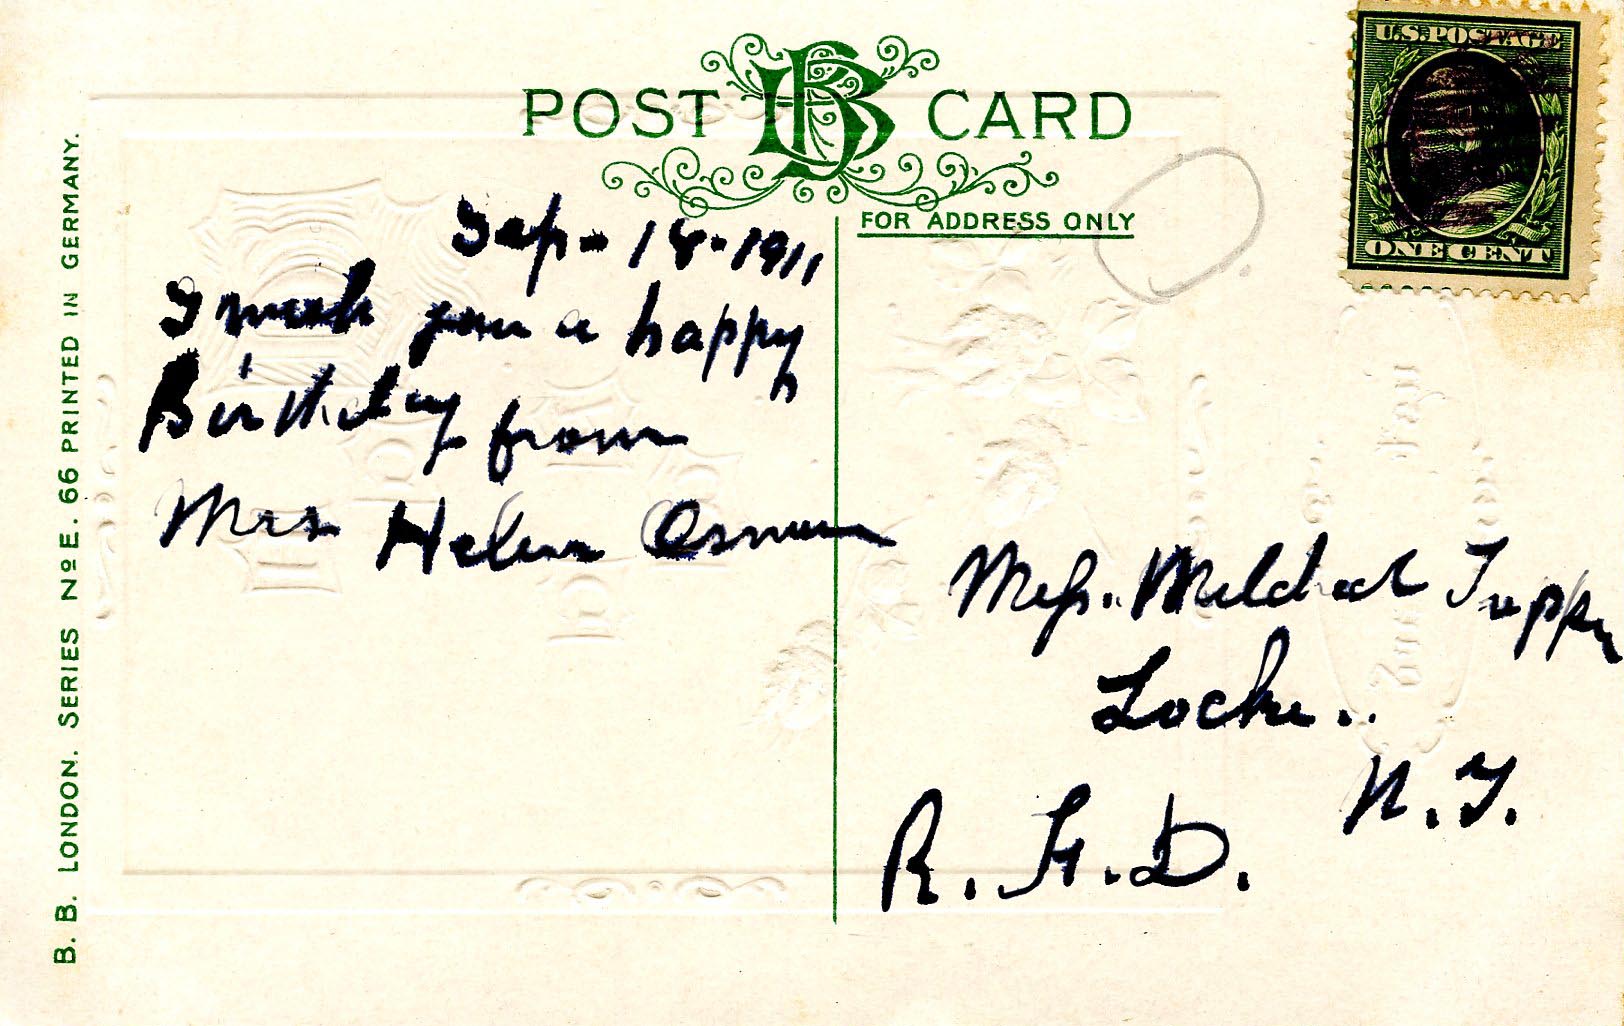 POST CARD
U.S. POSTAGE
ONE CENT
FOR ADDRESS ONLY
Sep - 18 - 1911
I wish you a happy
Birthday from
Mrs Helen Osmun
Miss. Mildred Tupper
Locke..
N.Y.
R.F.D.
B. B. LONDON. SERIES No E. 66 PRINTED IN GERMANY.